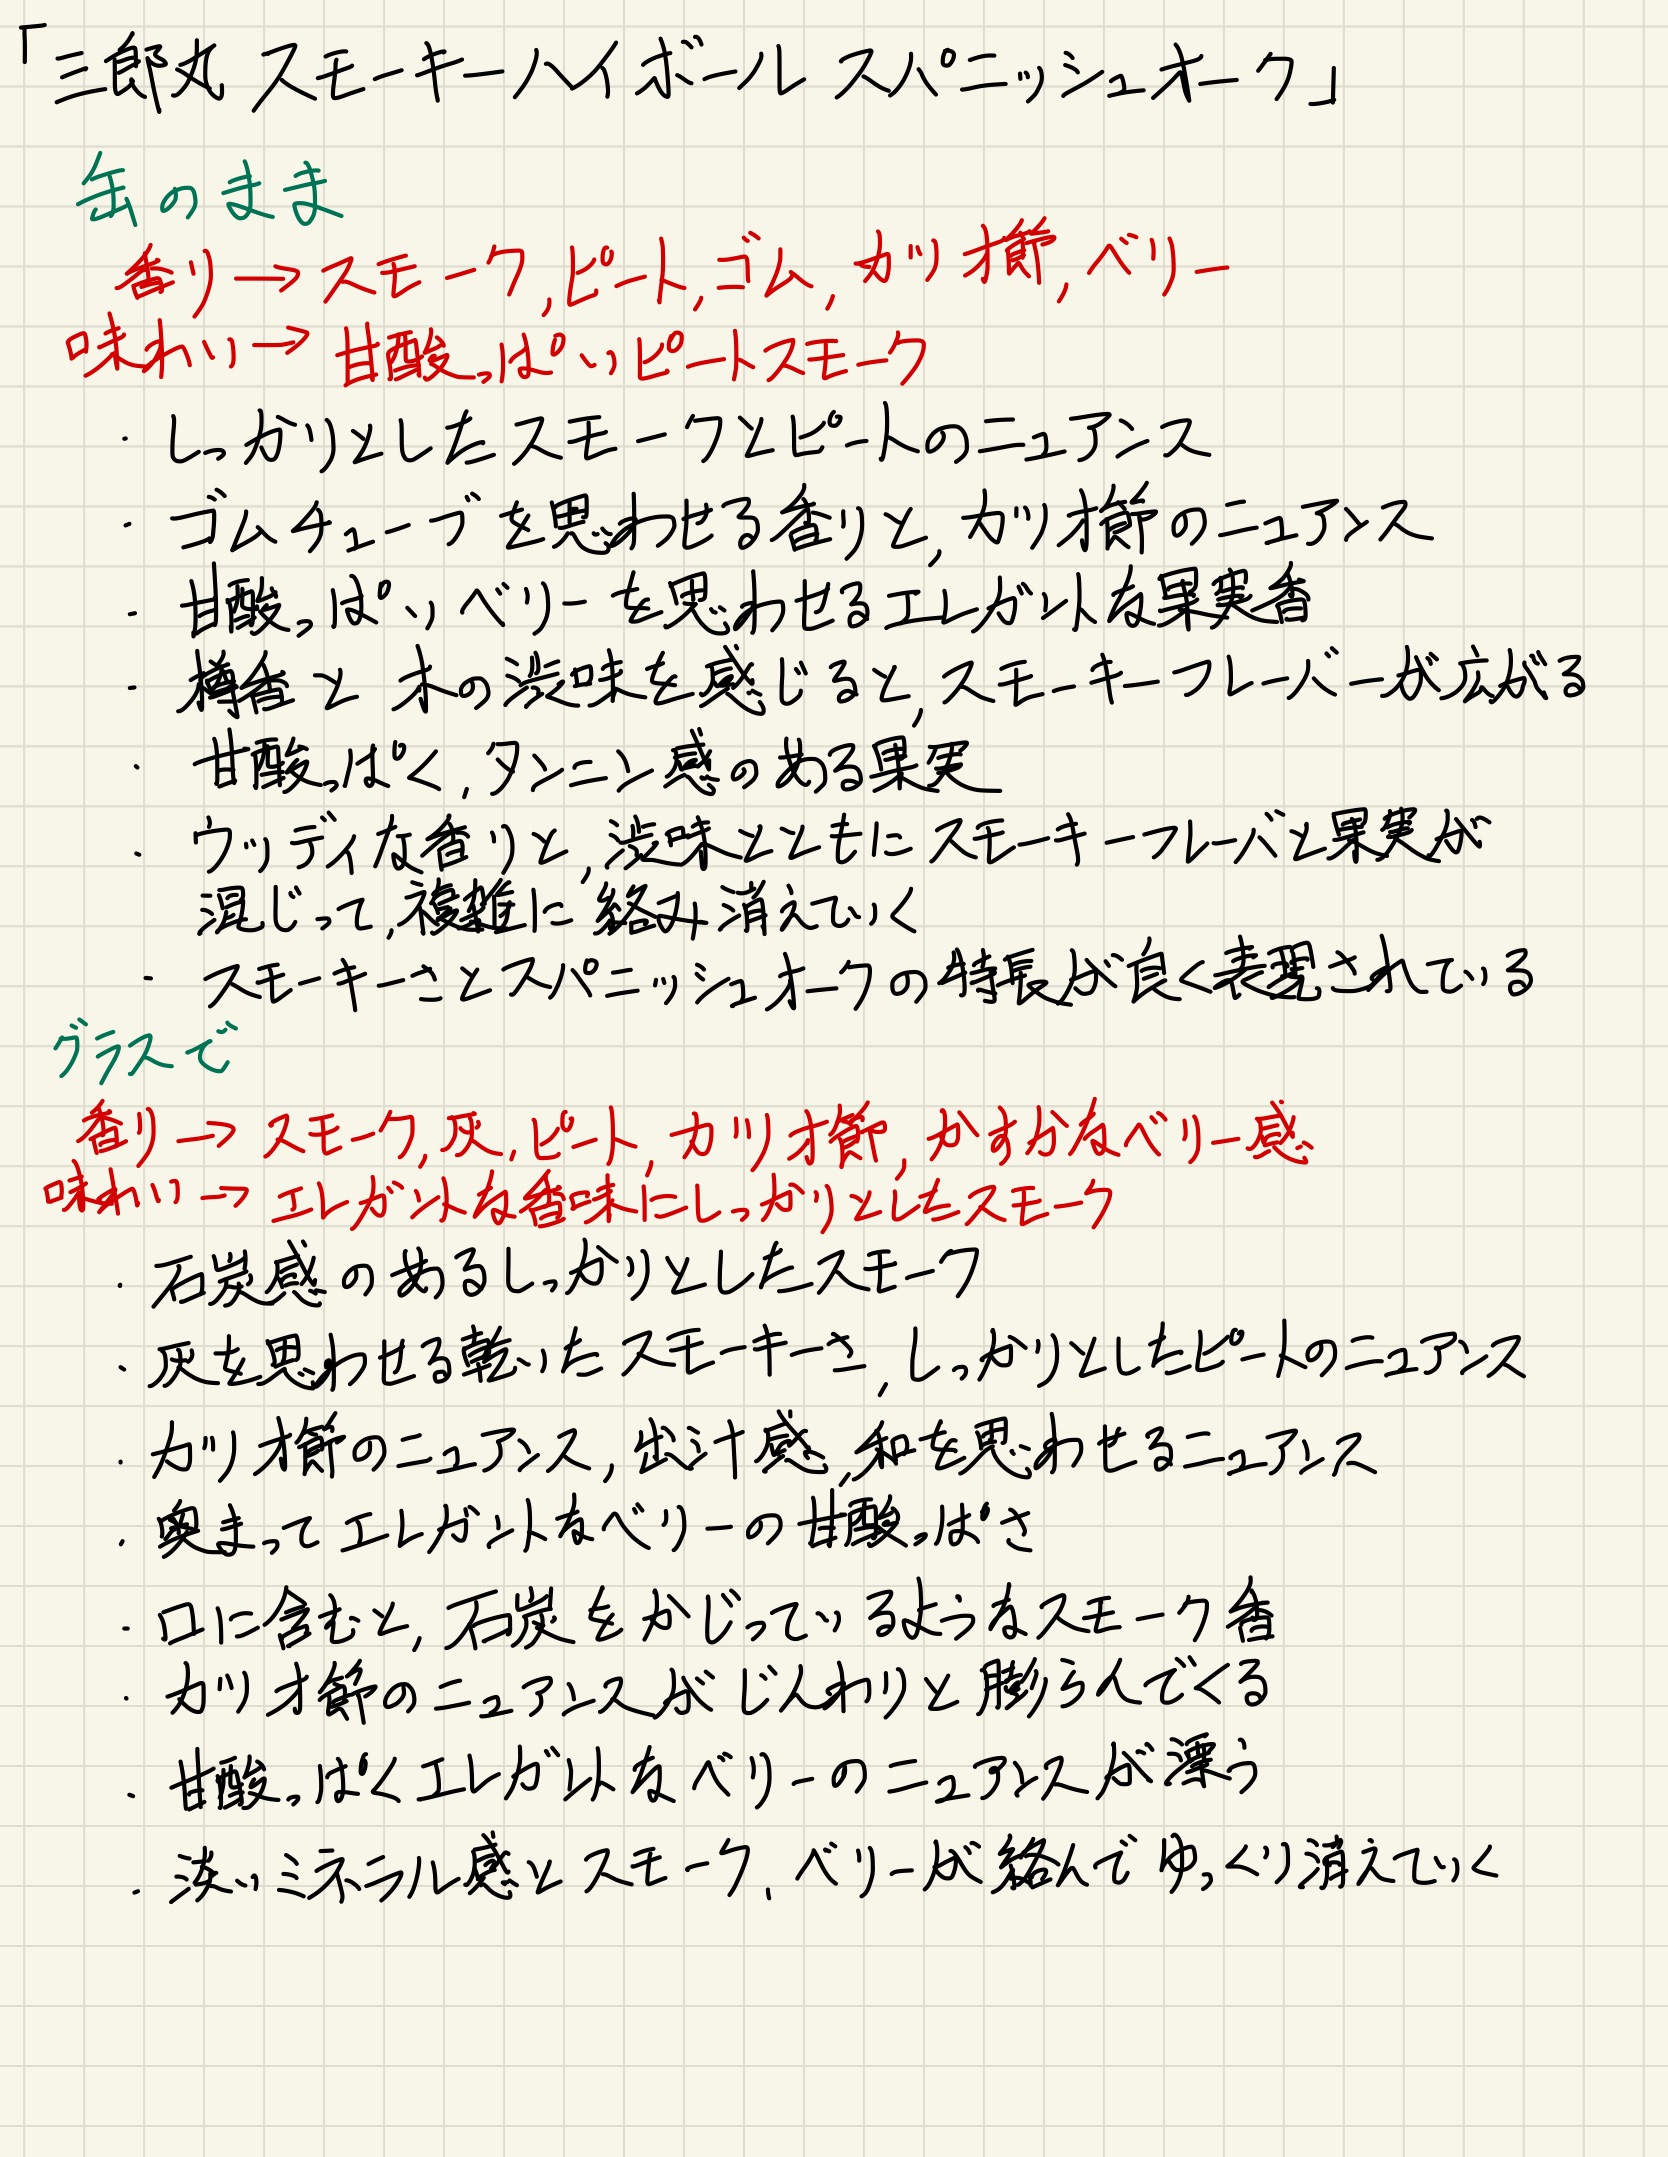 「三郎丸 スモーキーハイボール スパニッシュオーク」
缶のまま
香り→スモーク,ピート,ゴム,カツオ節,ベリー
味わい→甘酸っぱいピートスモーク
・しっかりとしたスモークとピートのニュアンス
・ゴムチューブを思わせる香りと,カツオ節のニュアンス
・甘酸っぱいベリーを思わせるエレガントな果実香
・樽香と木の渋味を感じると,スモーキーフレーバーが広がる
・甘酸っぱく,タンニン感のある果実
・ウッディな香りと,渋味とともにスモーキーフレーバと果実が
混じって,複雑に絡み消えていく
・スモーキーさとスパニッシュオークの特長が良く表現されている
グラスで
香り→スモーク,灰,ピート,カツオ節,かすかなベリー感
味わい→エレガントな香味にしっかりとしたスモーク
・石炭感のあるしっかりとしたスモーク
・灰を思わせる乾いたスモーキーさ,しっかりとしたピートのニュアンス
・カツオ節のニュアンス,出汁感,和を思わせるニュアンス
・奥まってエレガントなベリーの甘酸っぱさ
・口に含むと,石炭をかじっているようなスモーク香
・カツオ節のニュアンスがじんわりと膨らんでくる
・甘酸っぱくエレガントなベリーのニュアンスが漂う
・淡いミネラル感とスモーク,ベリーが絡んでゆっくり消えていく